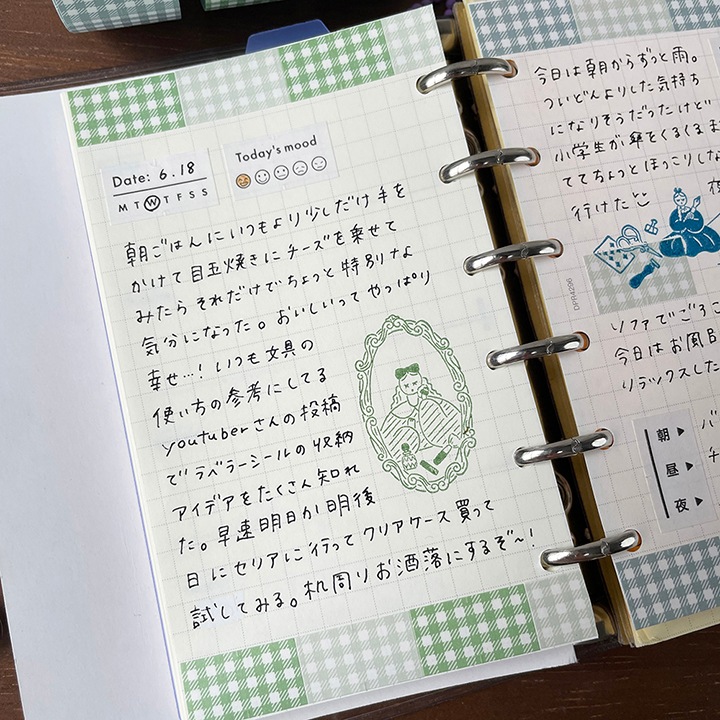 Date: 6.18
M T W T F S S
Today's mood
朝ごはんにいつもより少しだけ手を
かけて目玉焼きにチーズを乗せて
みたらそれだけでちょっと特別な
気分になった。おいしいってやっぱり
幸せ…！いつも文具の
使い方の参考にしてる
youtuberさんの投稿
でラベラーシールの収納
アイデアをたくさん知れ
た。早速明日か明後
日にセリアに行ってクリアケース買って
試してみる。机周りお洒落にするぞ〜！
今日は朝からずっと雨。
ついどんよりした気持ち
になりそうだったけど
小学生が傘をくるくるま
ててちょっとほっこりしな
行けた
OPR4296
ソファでごろご
今日はお風呂
リラックスした
朝▶
昼▶
夜▶
バ
チ